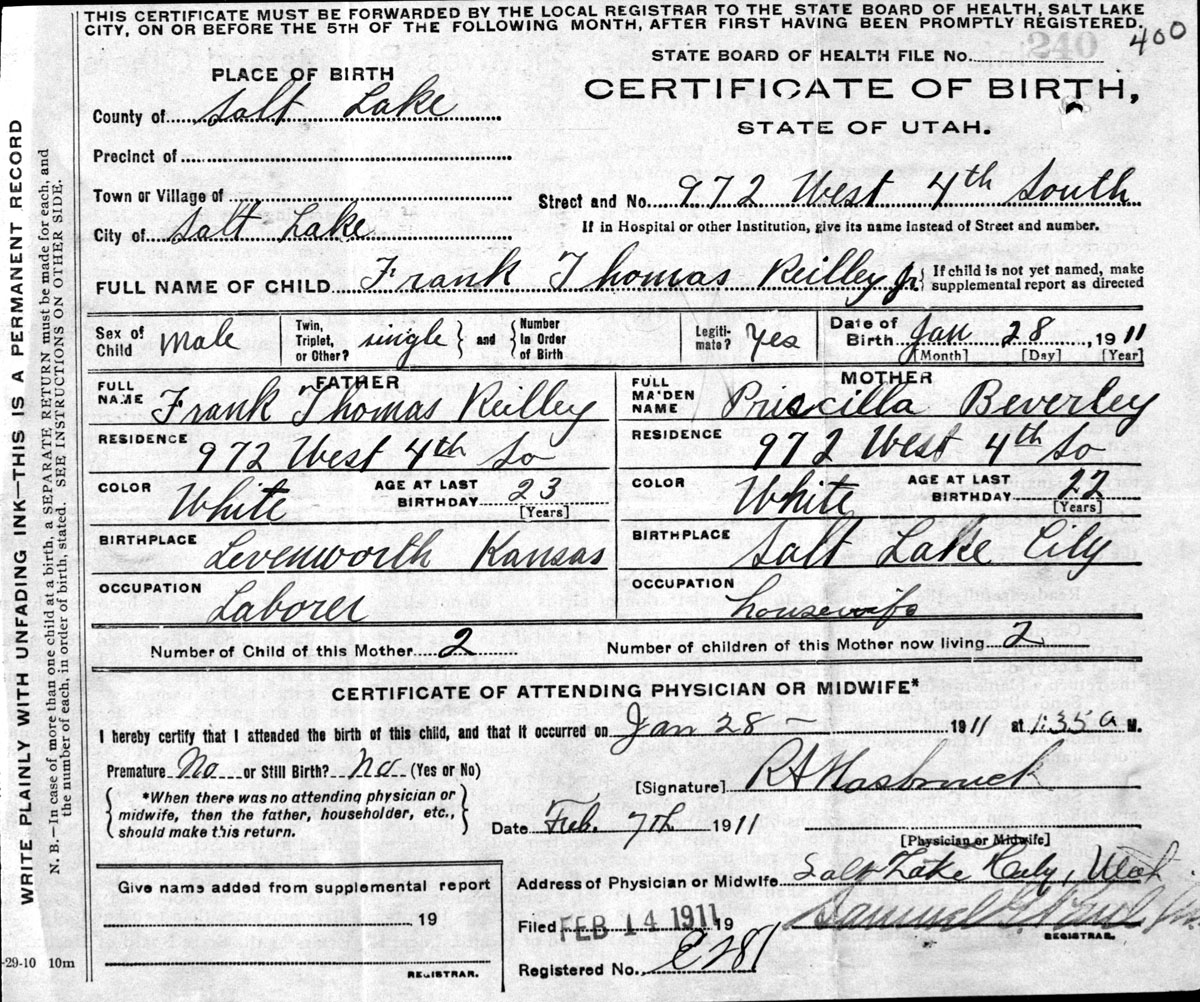 THIS CERTIFICATE MUST BE FORWARDED BY THE LOCAL REGISTRAR TO THE STATE BOARD OF HEALTH, SALT LAKE
CITY, ON OR BEFORE THE 5TH OF THE FOLLOWING MONTH, AFTER FIRST HAVING BEEN PROMPTLY REGISTERED.
400
STATE BOARD OF HEALTH FILE No. 240
PLACE OF BIRTH
CERTIFICATE OF BIRTH,
STATE OF UTAH.
County of Salt Lake
Precinct of
Town or Village of
Street and No. 972 West 4th South
City of Salt Lake
If in Hospital or other Institution, give its name instead of Street and number.
FULL NAME OF CHILD Frank Thomas Reilley Jr. { If child is not yet named, make
supplemental report as directed
Sex of Child Male
Twin, Triplet, or Other? single } and { Number In Order of Birth
Legiti-mate? Yes
Date of Birth Jan 28, 1911
[Month] [Day] [Year]
FATHER
FULL NAME Frank Thomas Reilley
RESIDENCE 972 West 4th So
COLOR White AGE AT LAST BIRTHDAY 23 [Years]
BIRTHPLACE Levenworth Kansas
OCCUPATION Laborer
MOTHER
FULL MAIDEN NAME Priscilla Beverley
RESIDENCE 972 West 4th So
COLOR White AGE AT LAST BIRTHDAY 22 [Years]
BIRTHPLACE Salt Lake City
OCCUPATION housewife
Number of Child of this Mother 2 Number of children of this Mother now living 2
CERTIFICATE OF ATTENDING PHYSICIAN OR MIDWIFE*
I hereby certify that I attended the birth of this child, and that it occurred on Jan 28 - 1911 at 1:35 a M.
Premature No or Still Birth? No (Yes or No)
[Signature] R A Hasbrouck
{ *When there was no attending physician or
midwife, then the father, householder, etc.,
should make this return. }
Date Feb. 7th 1911
[Physician or Midwife]
Give name added from supplemental report
19
REGISTRAR.
Address of Physician or Midwife Salt Lake City, Utah
Filed FEB 14 1911 19
Samuel G.
REGISTRAR.
Registered No. E281
-29-10 10m
WRITE PLAINLY WITH UNFADING INK—THIS IS A PERMANENT RECORD
N. B.—In case of more than one child at a birth, a SEPARATE RETURN must be made for each, and
the number of each, in order of birth, stated. SEE INSTRUCTIONS ON OTHER SIDE.